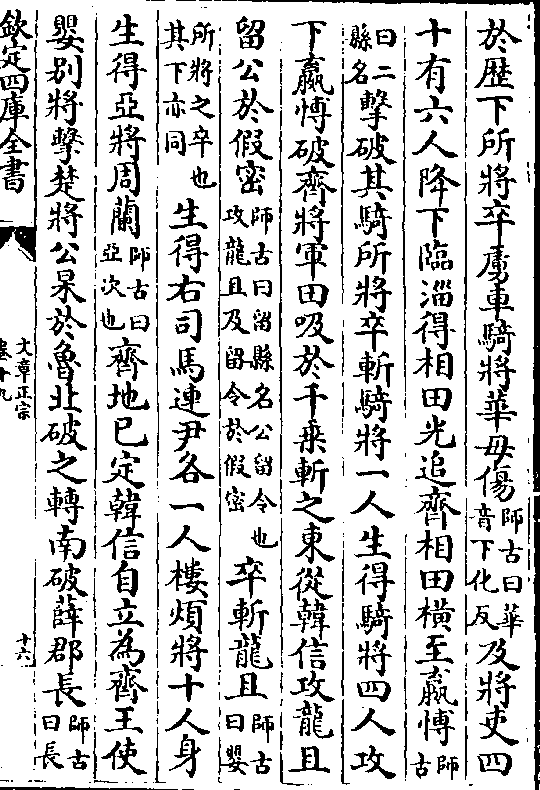 於歴下所將卒虜車騎將華毋傷師古曰華音下化反及將吏四
十有六人降下臨淄得相田光追齊相田横至嬴愽師古
曰二縣名擊破其騎所將卒斬騎將一人生得騎將四人攻
下嬴愽破齊將軍田吸於千乗斬之東從韓信攻龍且
留公於假密師古曰留縣名公留令也攻龍且及留令於假密卒斬龍且師古曰嬰
所將之卒也其下亦同生得右司馬連尹各一人樓煩將十人身
生得亞將周蘭師古曰亞次也齊地已定韓信自立為齊王使
嬰别將擊楚將公杲於魯北破之轉南破薛郡長師古曰長
欽定四庫全書
文章正宗
卷十九
十六